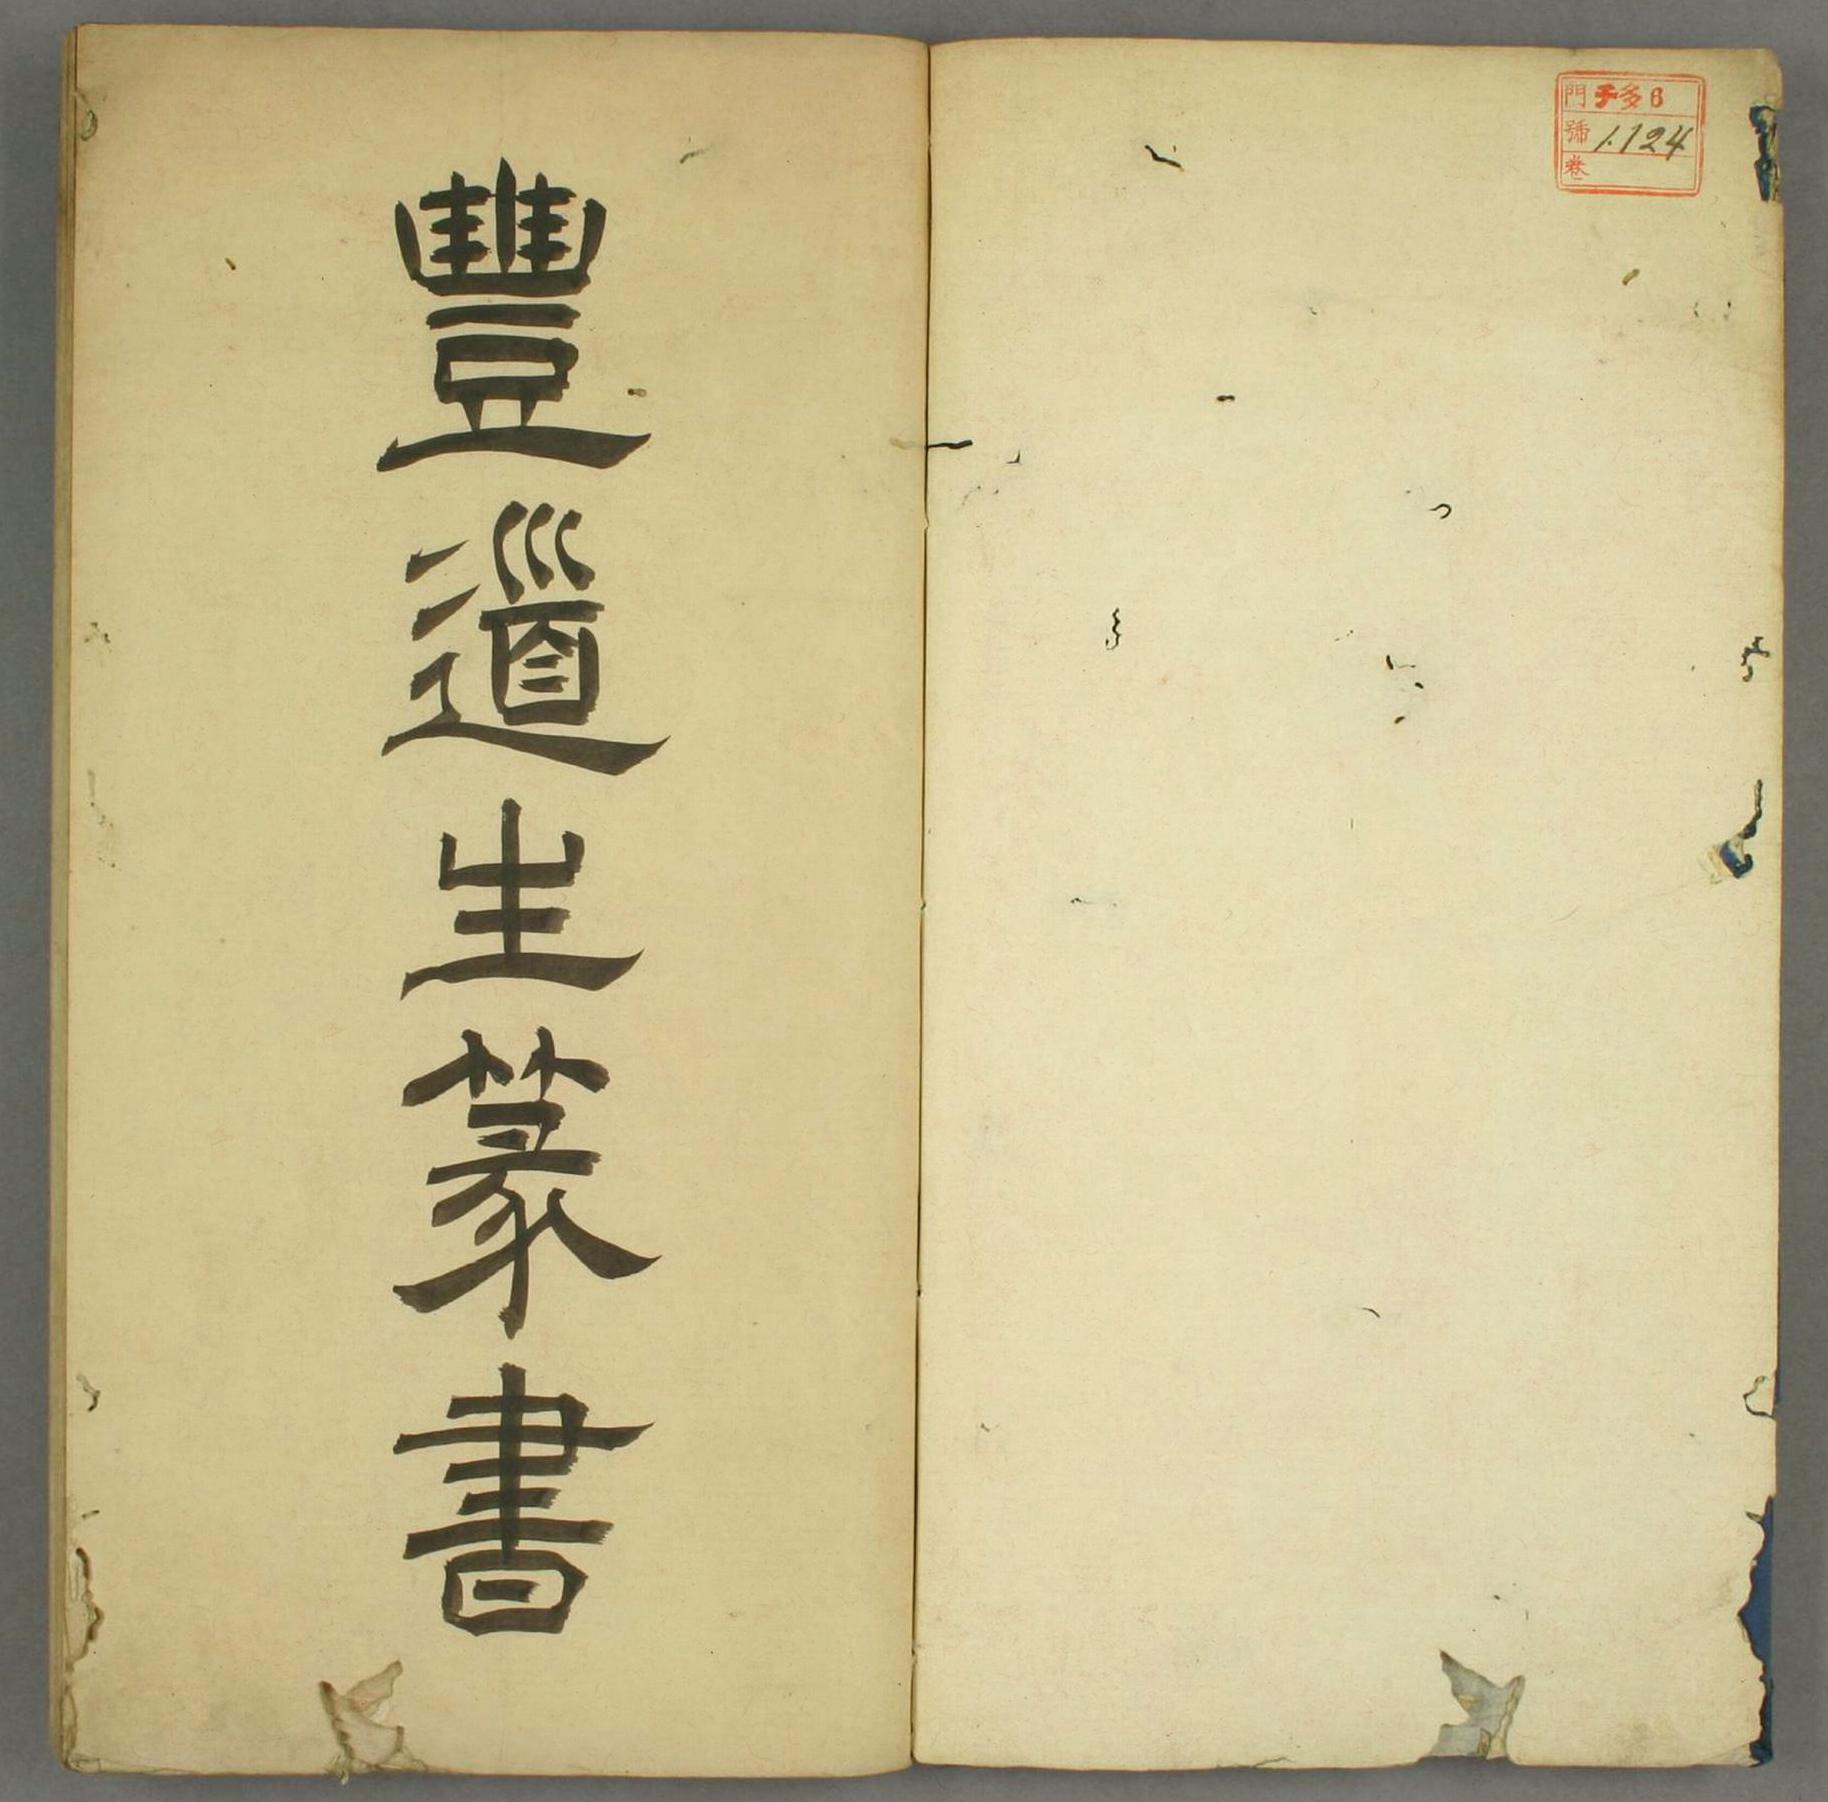 門 チ6
號 1.124
卷
豐道生篆書